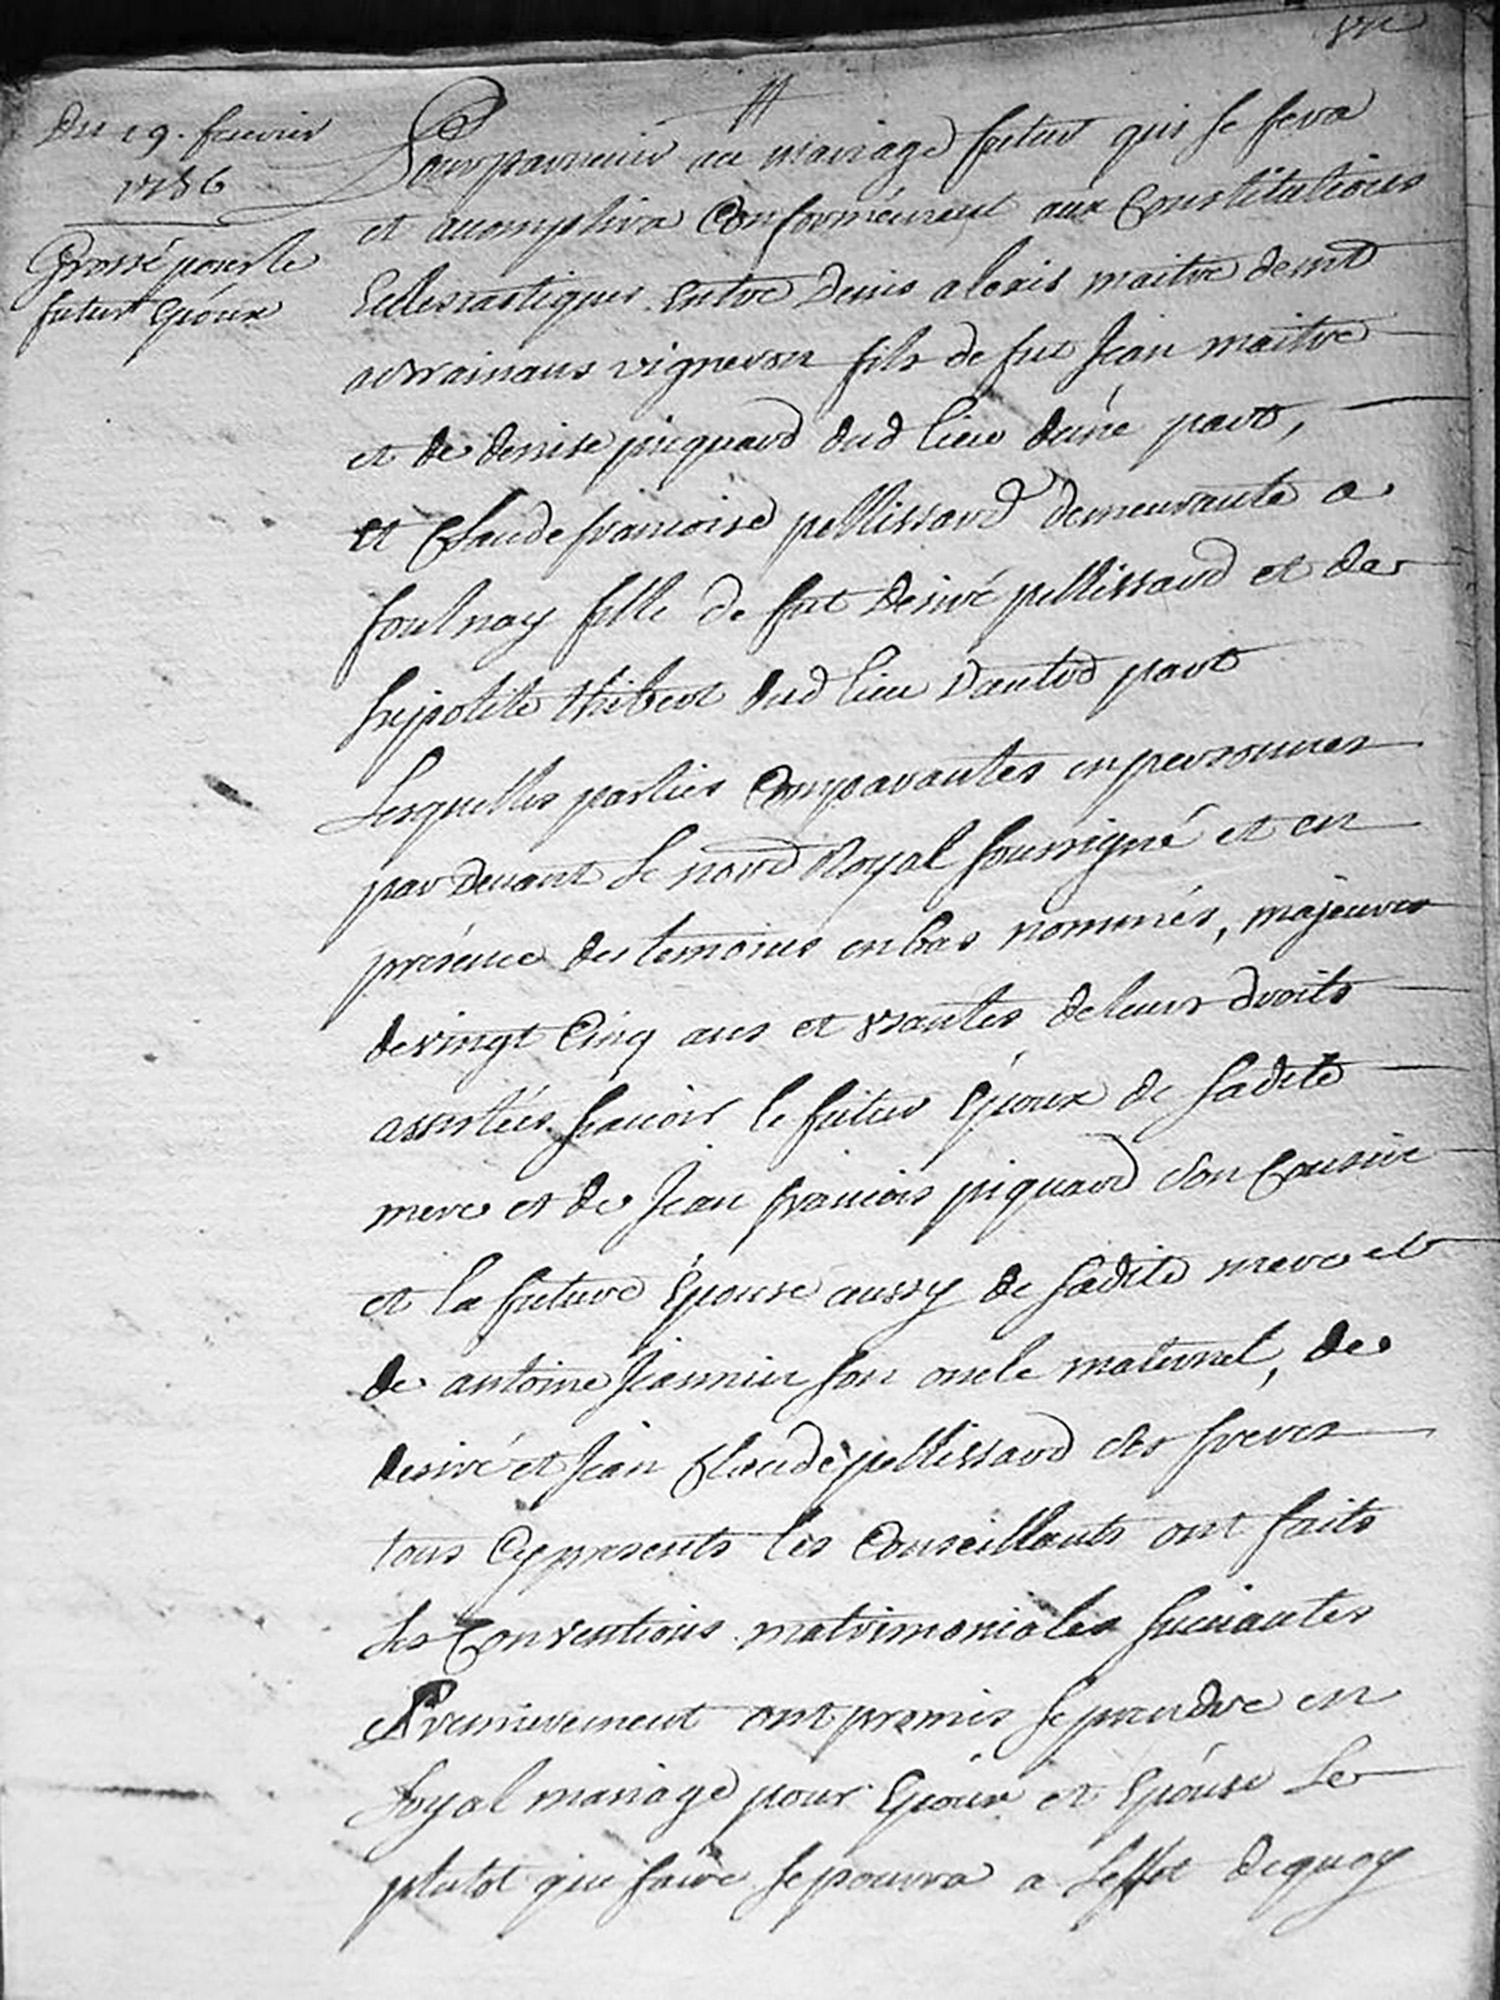 Du 19. fevrier
1786
Grossé pour le
futur Epoux
Pour parvenir au mariage futur qui se fera
et acomplira Conformément aux Constitutions
Ecclesiastiques Entre Denis alexis maitre demt
vigneron fils de fut Jean maitre
et de denise piquard dud lieu dune part,
et Claude francoise pellissard demeurante a
foulnay fille de fut desiré pellissard et de
hipolite thibert dud lieu dautre part
Lesquelles parties Comparantes en personnes
par devant le nore Royal soussigné et en
présence des temoins en bas nommés, majeures
de vingt Cinq ans et usantes de leurs droits
assistées scavoir le futur Epoux de sadite
mere et de Jean francois piquard son Cousin
et la future Epouse aussy de sadite mere et
de antoine Jeannin son oncle maternel, de
desiré et Jean Claude pellissard ses freres
tous Cy presents les Conseillants ont faits
les Conventions matrimoniales suivantes
Premierement ont promis se prendre en
Loyal mariage pour Epoux et Epouse Le
plutot que faire se pourra a Leffet dequoy